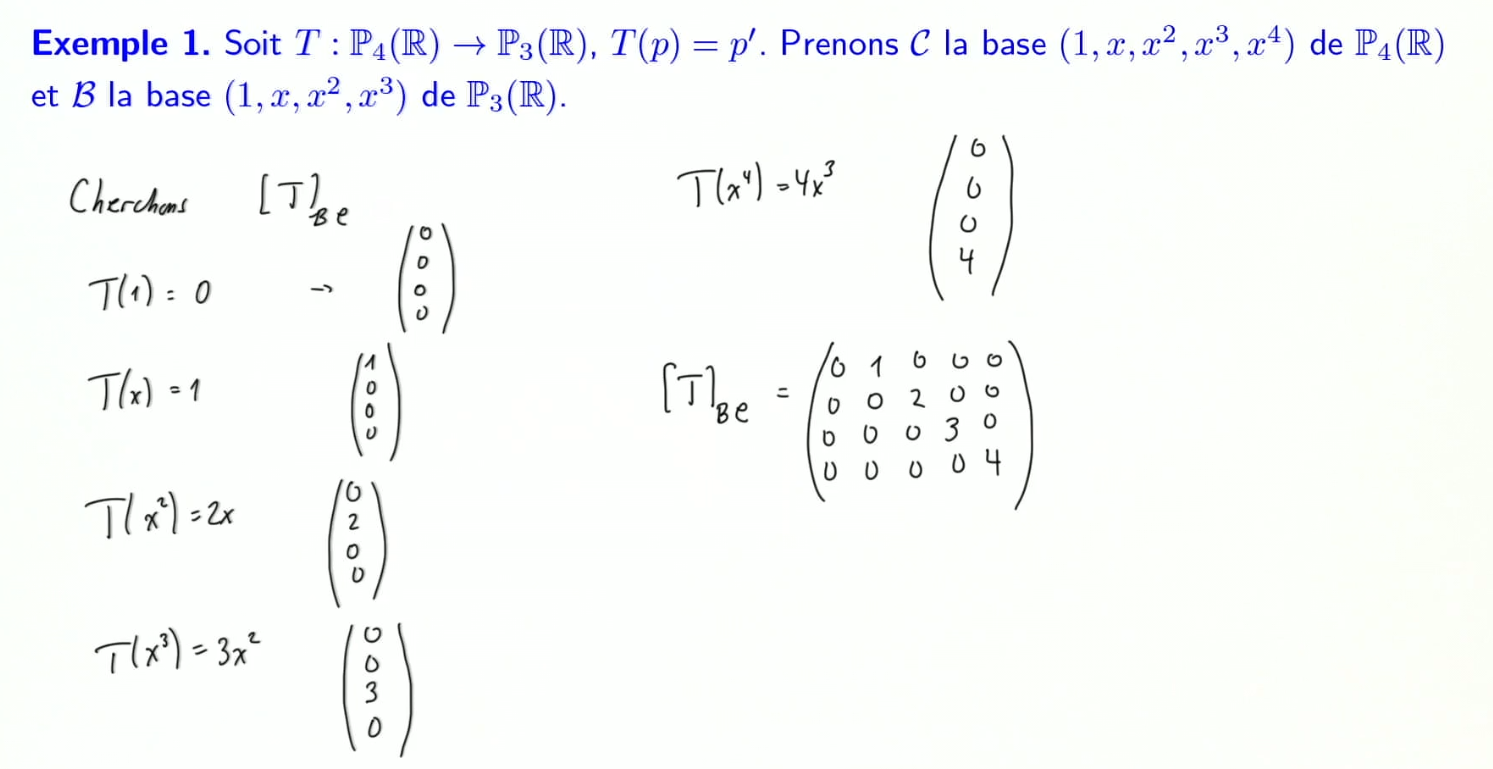 Exemple 1. Soit T : ℙ₄(ℝ) → ℙ₃(ℝ), T(p) = p′. Prenons 𝒞 la base (1, x, x², x³, x⁴) de ℙ₄(ℝ)
et ℬ la base (1, x, x², x³) de ℙ₃(ℝ).
Cherchons [T]_BC
T(1) = 0 → (0 0 0 0)
T(x) = 1 (1 0 0 0)
T(x²) = 2x (0 2 0 0)
T(x³) = 3x² (0 0 3 0)
T(x⁴) = 4x³ (0 0 0 4)
[T]_BC =
0 1 0 0 0
0 0 2 0 0
0 0 0 3 0
0 0 0 0 4